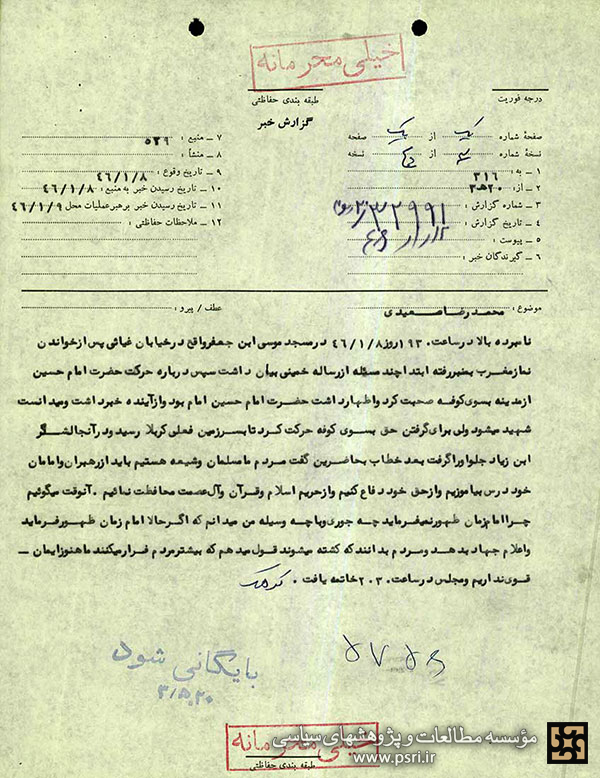 خیلی محرمانه
درجه فوریت
طبقه بندی حفاظتی
گزارش خبر
صفحه شماره یک از یک صفحه
نسخه شماره از نسخه
۱ – به : ۳۱۶
۲ – از : ۲۰ه۳
۳ – شماره گزارش :
۴ – تاریخ گزارش :
۵ – پیوست :
۶ – گیرندگان خبر :
۷ – منبع : ۵۲۹
۸ – منشأ :
۹ – تاریخ وقوع : ۴۶/۱/۸
۱۰ – تاریخ رسیدن خبر به منبع : ۴۶/۱/۸
۱۱ – تاریخ رسیدن خبر برهبر عملیات محل ۴۶/۱/۹
۱۲ – ملاحظات حفاظتی :
موضوع : محمدرضا سعیدی
عطف / پیرو :
نامبرده بالا در ساعت ۱۹۳۰ روز ۴۶/۱/۸ در مسجد موسی ابن جعفر واقع در خیابان غیاثی پس از خواندن
نماز مغرب بمنبر رفته ابتدا چند مسئله از رساله خمینی بیان داشت سپس درباره حرکت حضرت امام حسین
از مدینه بسوی کوفه صحبت کرد و اظهار داشت حضرت امام حسین امام بود و از آینده خبر داشت و میدانست
شهید میشود ولی برای گرفتن حق بسوی کوفه حرکت کرد تا بسرزمین فعلی کربلا رسید و در آنجا لشگر
ابن زیاد جلو او را گرفت بعد خطاب بحاضرین گفت مردم ما مسلمان و شیعه هستیم باید از رهبران و امامان
خود درس بیاموزیم و از حق خود دفاع کنیم و از حریم اسلام و قرآن و آل عصمت محافظت نمائیم . آنوقت میگوئیم
چرا امام زمان ظهور نمیفرماید چه جوری و با چه وسیله من میدانم که اگر حالا امام زمان ظهور فرماید
و اعلام جهاد بدهد و مردم بدانند که کشته میشوند قول میدهم که بیشتر مردم فرار میکنند ما هنوز ایمان –
قوی نداریم و مجلس در ساعت ۲۰۳۰ خاتمه یافت .
بایگانی شود
۳/۵/۲۰
خیلی محرمانه
طبقه بندی حفاظتی
مؤسسه مطالعات و پژوهشهای سیاسی
www.psri.ir